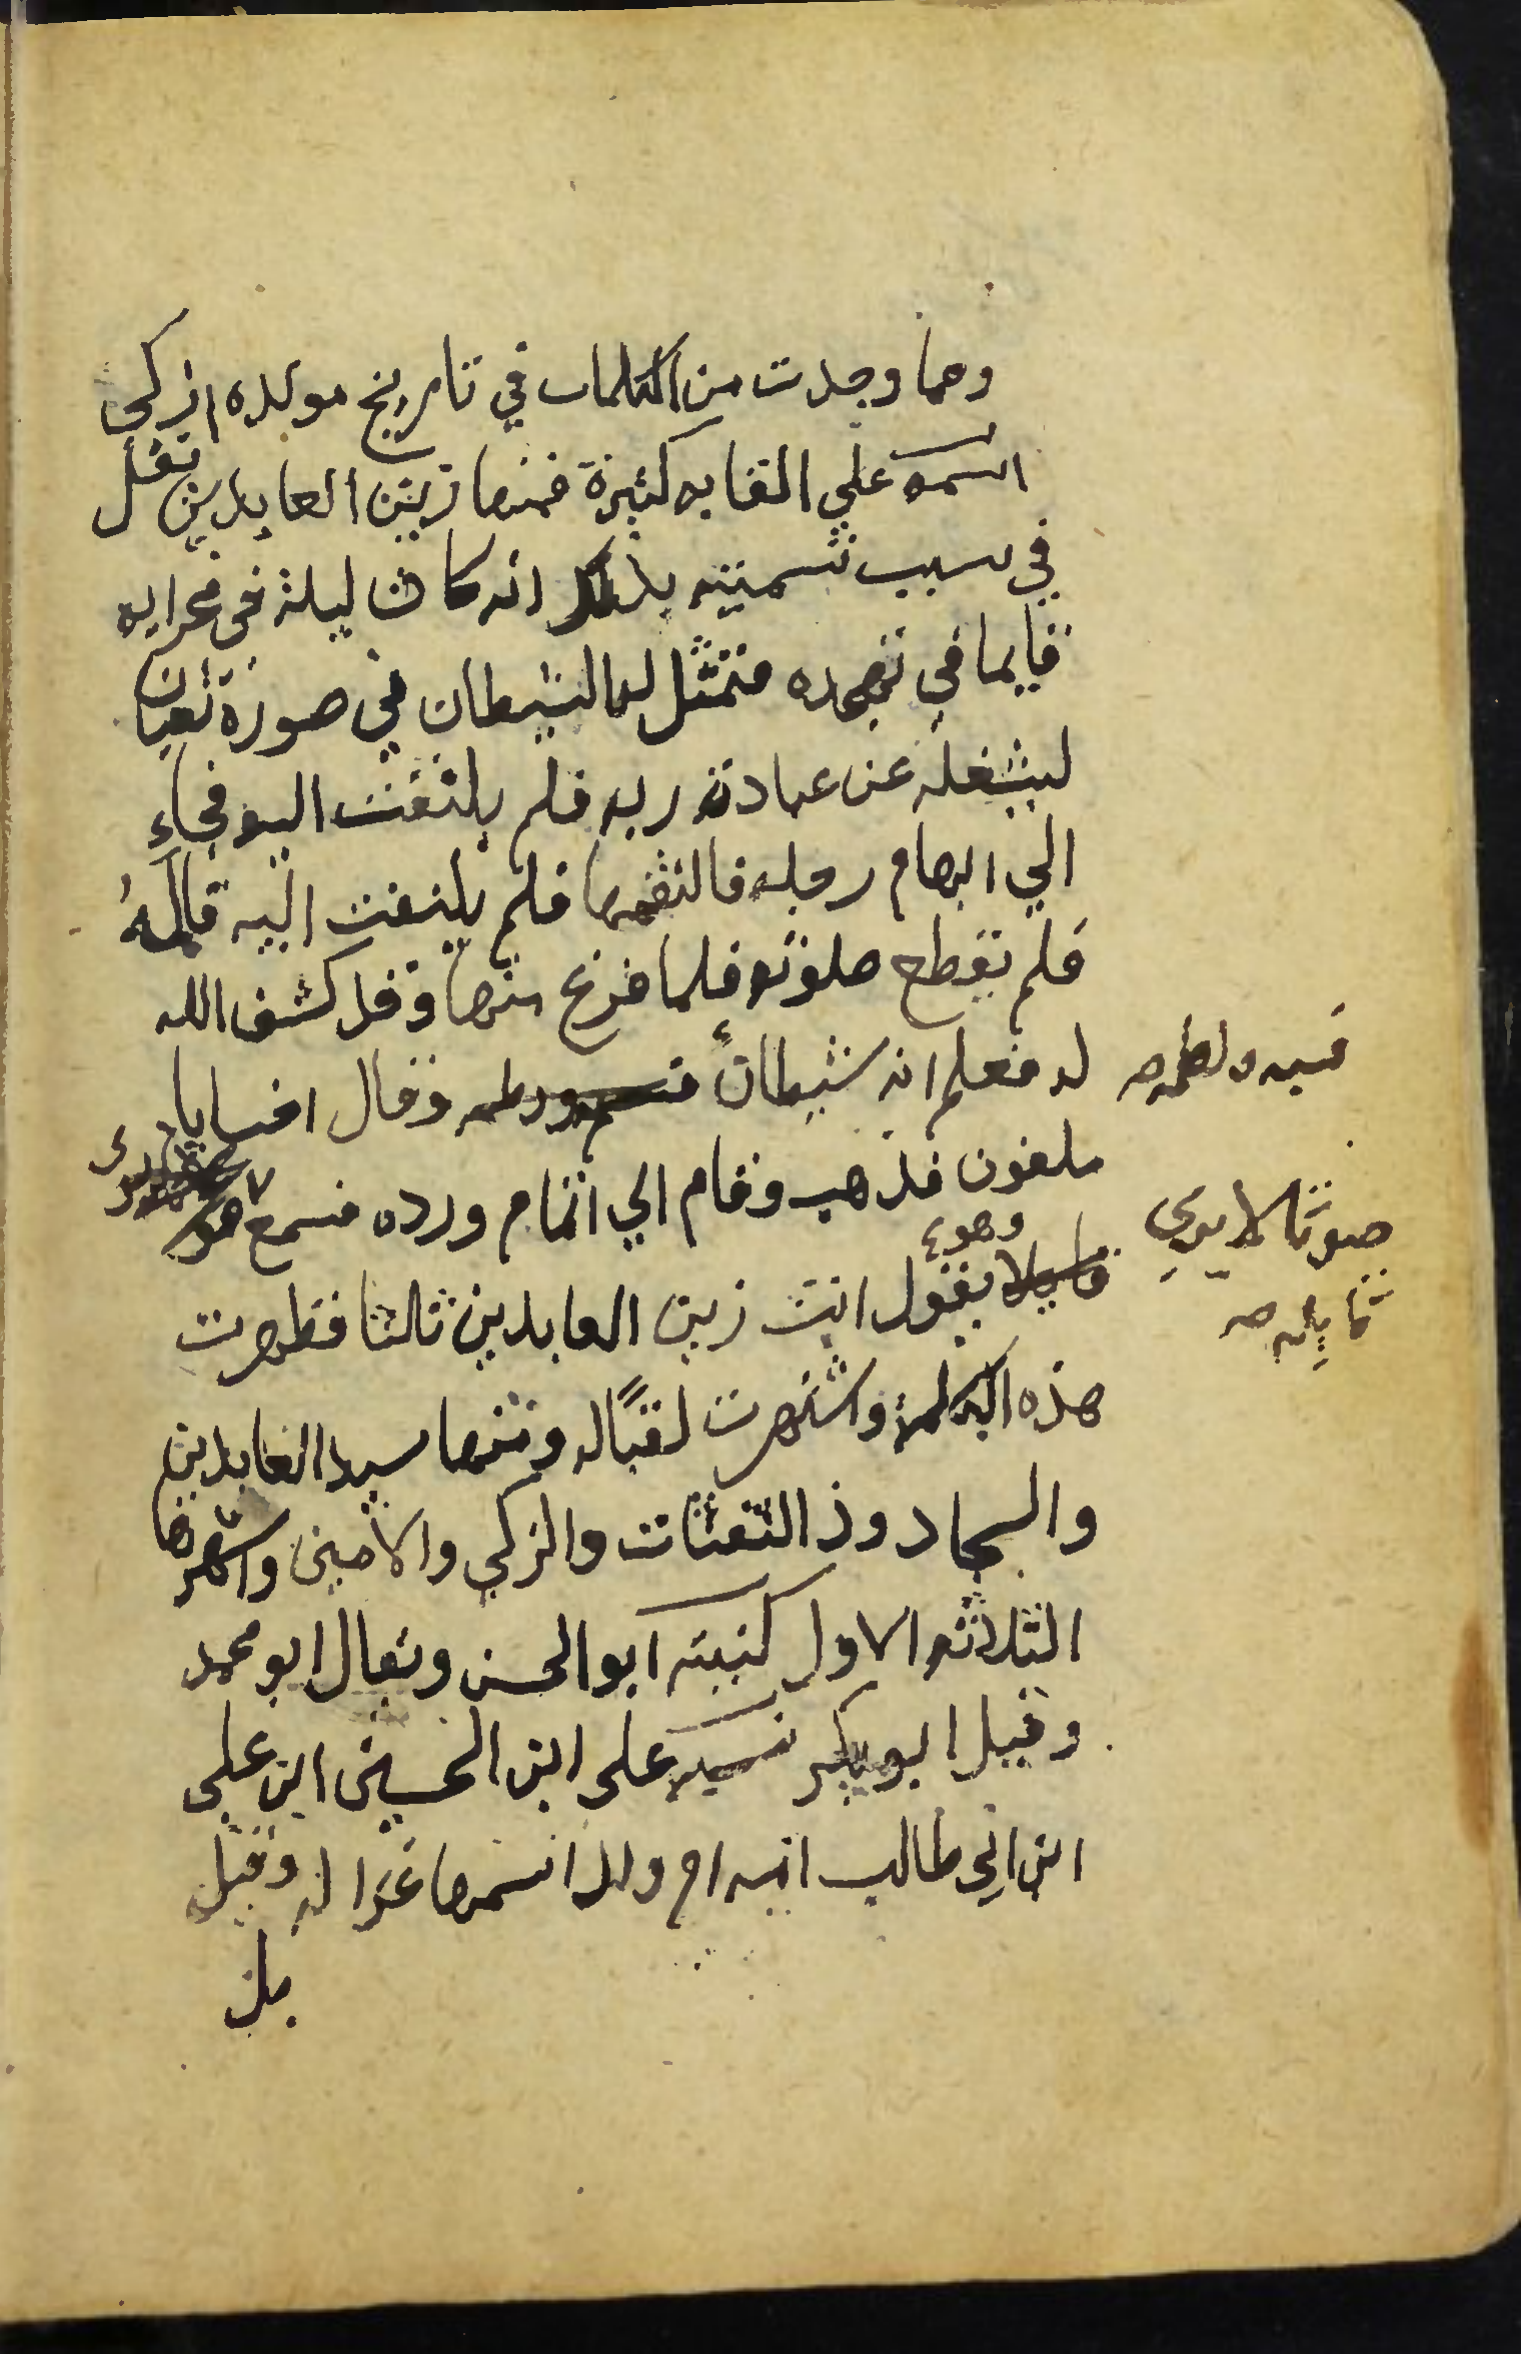 ومما وجدت من الكلمات في تاريخ مولده الزكي
اسمه علي القابه كثيرة فمنها زين العابدين نقل
في سبب تسميته بذلك انه كان ليلة في محرابه
قايما في تهجده فتمثل له الشيطان في صورة ثعبان
ليشغله عن عبادة ربه فلم يلتفت اليه فجاء
الي ابهام رجله فالتقمها فلم يلتفت اليه فالمه
فلم يقطع صلوته فلما فرغ منها وقد كشف الله
له فعلم انه شيطان وقال اخسا يا
فسبه ولطمه صح
ملعون فذهب وقام الي اتمام ورده فسمع
صوتا لا يري
قايله صح
وهو يقول انت زين العابدين ثالثا فظهرت
هذه الكلمة واشتهرت لقبا له ومنها سيد العابدين
والسجاد وذ الثفنات والزكي والامين واشهرها
الثلاثه الاول كنيته ابو الحسن ويقال ابو محمد
وقيل ابو بكر نسبه علي ابن الحسين ابن علي
ابن ابي طالب امه ام ولد اسمها غزاله وقيل
بل